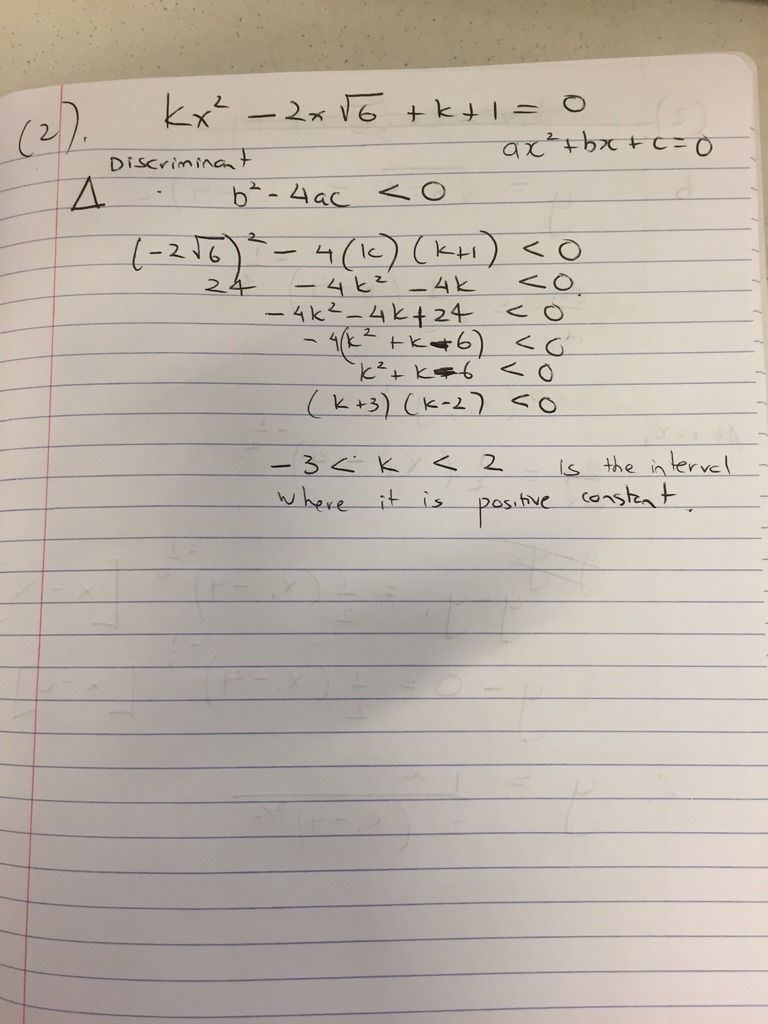 (2). kx² - 2x √6 + k + 1 = 0
ax² + bx + c = 0
Discriminant
Δ b² - 4ac < 0
(-2√6)² - 4(k)(k+1) < 0
24 - 4k² - 4k < 0.
-4k² - 4k + 24 < 0
-4(k² + k - 6) < 0
k² + k - 6 < 0
(k+3)(k-2) < 0
-3 < k < 2 is the interval
where it is positive constant.